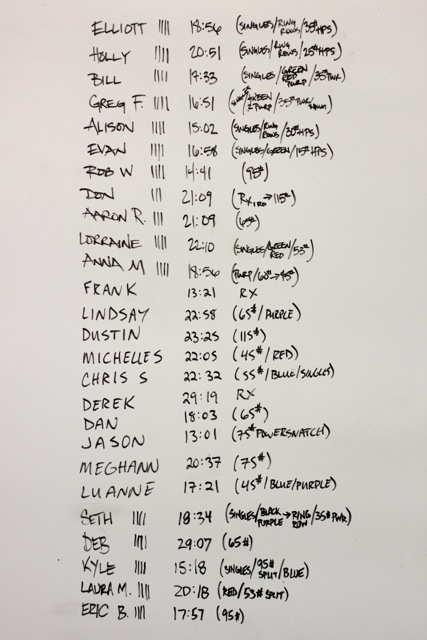 ELLIOTT |||| 18:56 (SINGLES/RING ROWS/35# HPS)
HOLLY |||| 20:51 (SINGLES/RING ROWS/25# HPS)
BILL |||| 19:33 (SINGLES/GREEN RED PURP/35# PWR)
GREG F. |||| 16:51 (GREEN PURP/35# PWR
ALISON |||| 15:02 (SINGLES/RING ROWS/30# HPS)
EVAN |||| 16:58 (SINGLES/GREEN/15# HPS)
ROB W |||| 14:41 (95#)
DON |||| 21:09 (RX → 115#)
AARON R. |||| 21:09 (65#)
LORRAINE |||| 22:10 (SINGLES/GREEN RED/53#)
ANNA M |||| 18:56 (PURP/60# → 45#)
FRANK 13:21 RX
LINDSAY 22:58 (65#/PURPLE)
DUSTIN 23:25 (115#)
MICHELLES 22:05 (45#/RED)
CHRIS S 22:32 (55#/BLUE/SINGLES)
DEREK 29:19 RX
DAN 18:03 (65#)
JASON 13:01 (75# POWERSNATCH)
MEGHANN 20:37 (75#)
LUANNE 17:21 (45#/BLUE/PURPLE)
SETH |||| 18:34 (SINGLES/BLACK PURPLE → RING ROW/35# PWR)
DEB |||| 29:07 (65#)
KYLE |||| 15:18 (SINGLES/95# SPLIT/BLUE)
LAURA M. |||| 20:18 (RED/53# SPLIT)
ERIC B. |||| 17:57 (95#)